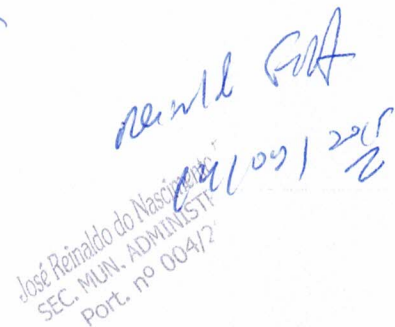 04/09/2015
José Reinaldo do Nascimento
SEC. MUN. ADMINIST
Port. nº 004/2